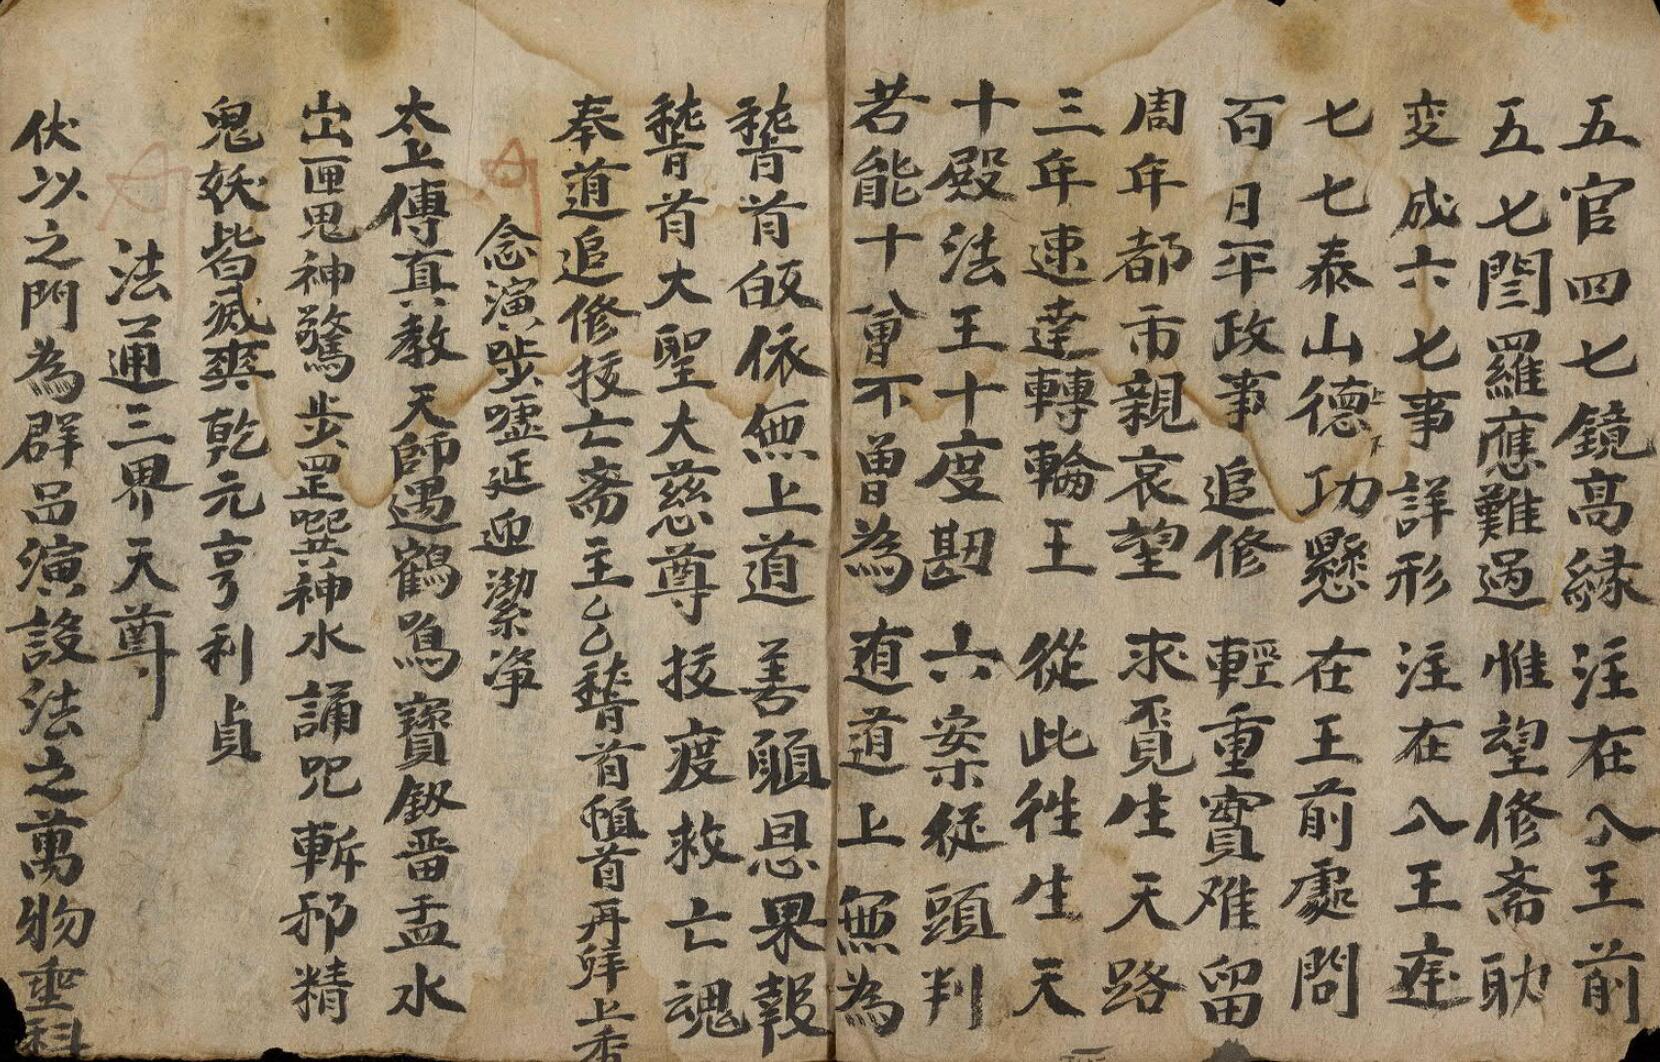 五官四七鏡高緣 注在八王前
五七閆羅應難過 惟望修斋功
变成六七事詳形 注在八王
七七泰山德功懸 在王前處問
百日平政事追修 輕重實难留
周年都市親哀望 求覓生天路
三年速達轉輪王 從此徃生天
十殿法王十度勘 六案從頭判
若能十會不曽為 逍道上無為
嵇首皈依無上道 善願恩果報
嵇首大聖大慈尊 救亡魂
奉道追修拔亡斋主乙乙嵇首頓首再拜上香
念演步噓延迎潔净
太上傳真教 天師遇鶴鳴 寳釼畨盂水
出匣鬼神驚 步罡噀神水 誦咒斬邪精
鬼妖皆滅爽 乾元亨利貞
法通三界天尊
伏以之門為群品演設法之萬物重科